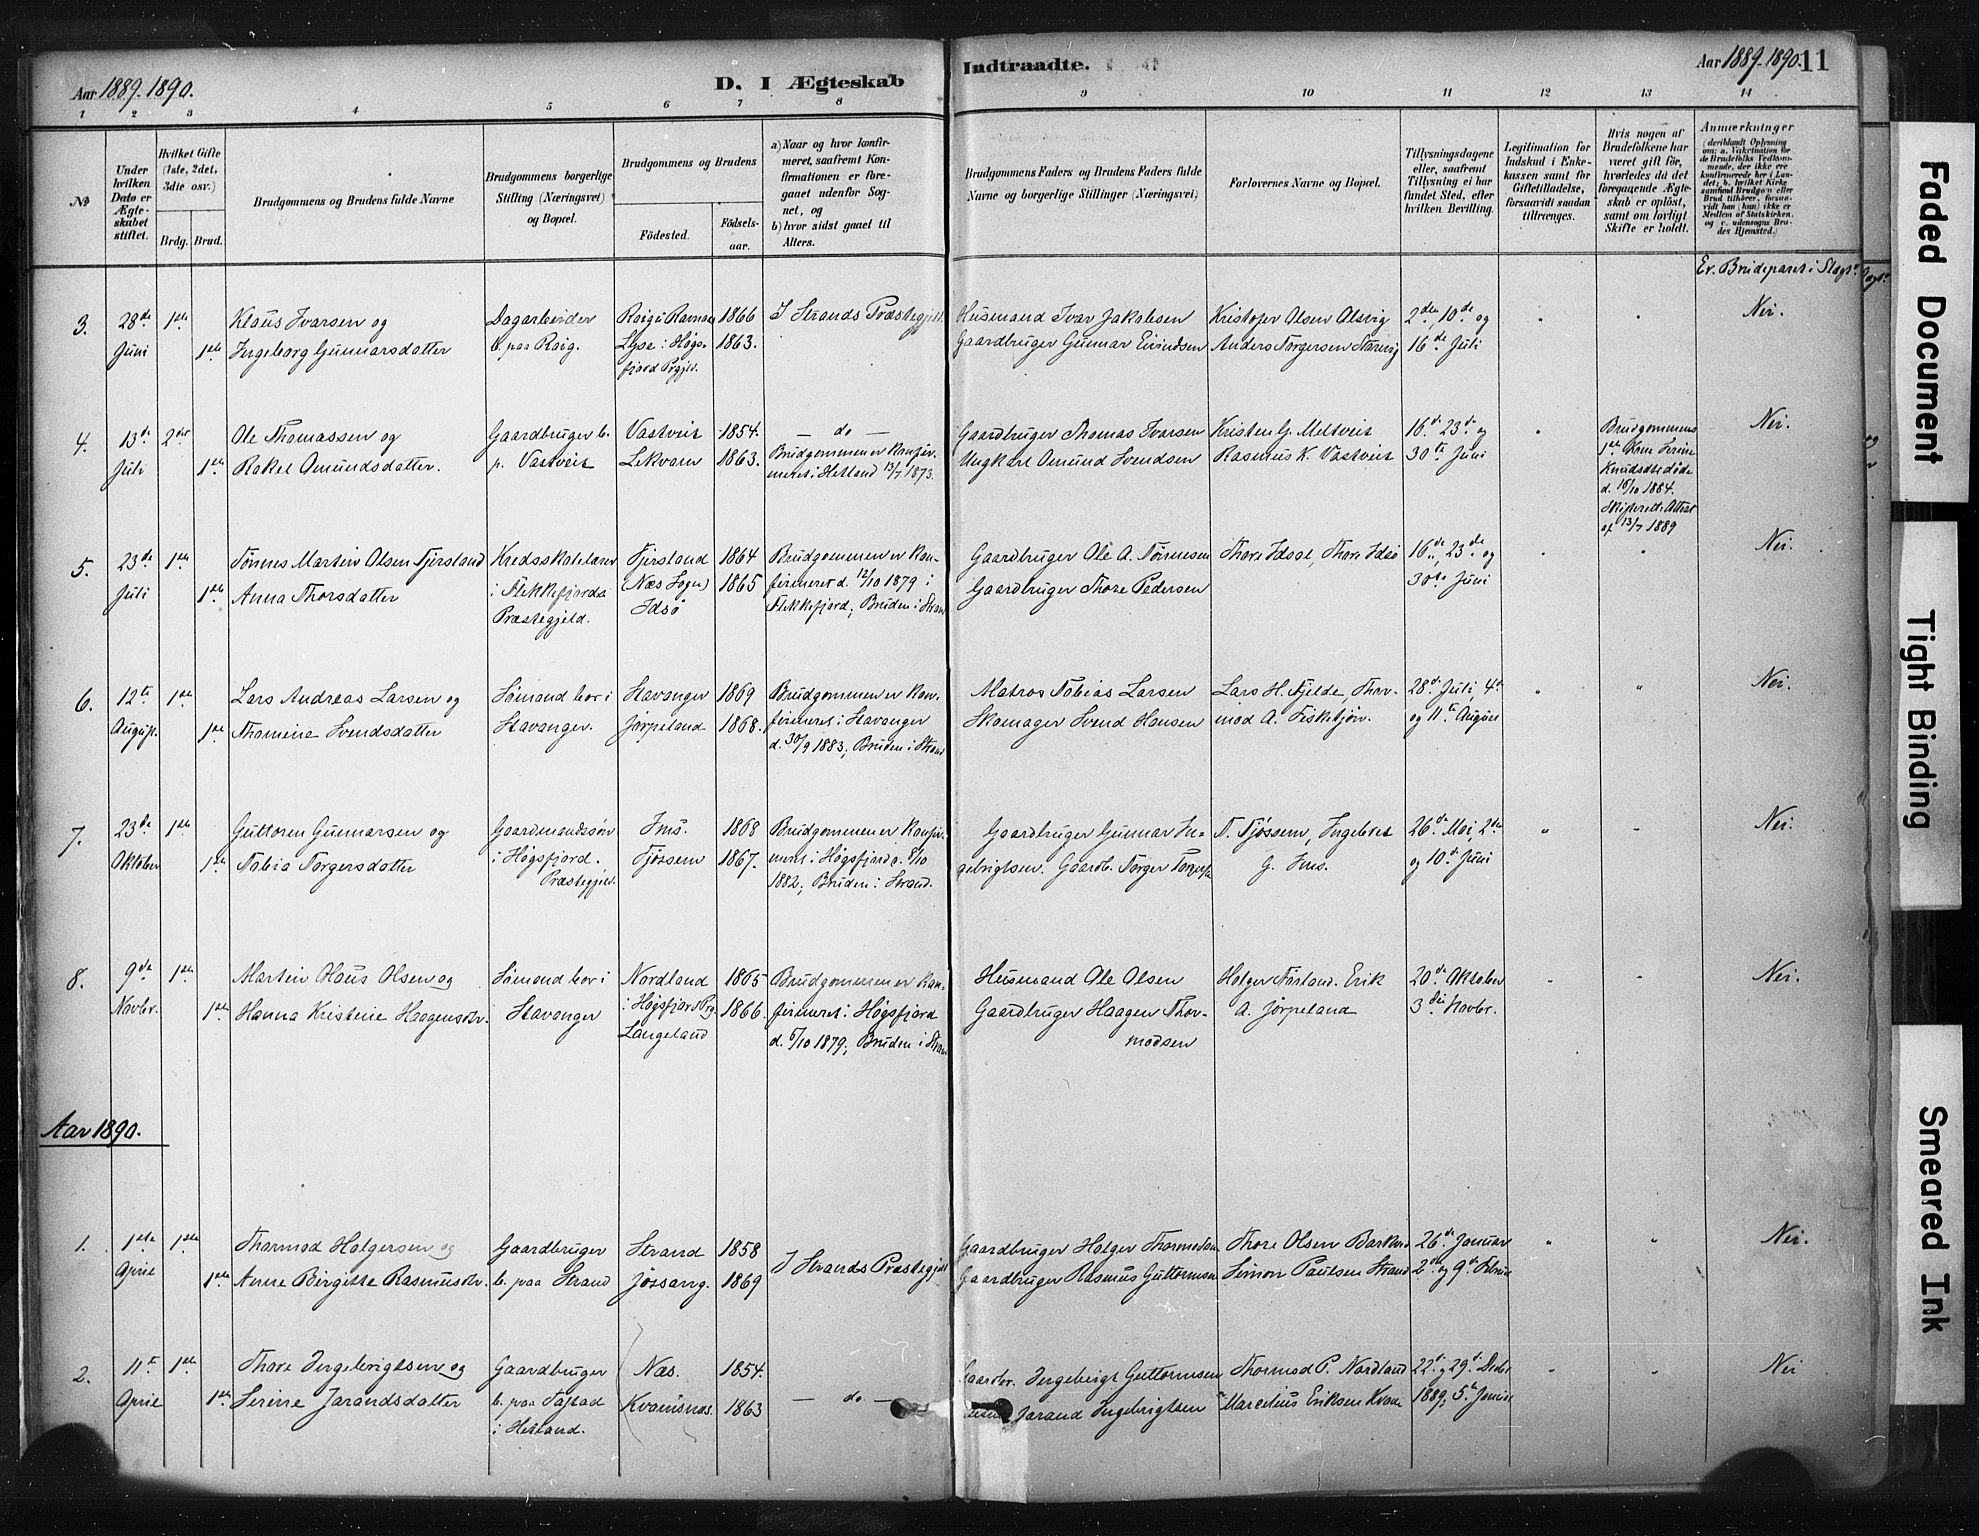 Aar 1889. 1890.
D. I Ægteskab Indtraadte.
Aar 1889. 1890. 11
1 2 3 4 5 6 7 8 9 10 11 12 13 14
No
Under hvilken Dato er Ægteskabet stiftet.
Hvilket Gifte (1ste, 2det, 3die osv.)
Brdg. Brud.
Brudgommens og Brudens fulde Navne
Brudgommens borgerlige Stilling (Næringsvei) og Bopæl.
Brudgommens og Brudens
Fødested.
Fødsels-aar.
a) Naar og hvor konfirmeret, saafremt Konfirmationen er foregaaet udenfor Sognet, og
b) hvor sidst gaaet til Alters.
Brudgommens Faders og Brudens Faders fulde Navne og borgerlige Stillinger (Næringsvei)
Forlovernes Navne og Bopæl.
Tillysningsdagene eller, saafremt Tillysning ei har fundet Sted, efter hvilken Bevilling.
Legitimation for Indskud i Enkekassen samt for Giftetilladelse, forsaavidt saadan tiltrænges.
Hvis nogen af Brudefolkene har været gift før, hvorledes da det foregaaende Ægteskab er opløst, samt om lovligt Skifte er holdt.
Anmærkninger (deriblandt Oplysning om: a. Vakcination for de Brudefolks Vedkommende, der ikke ere konfirmerede her i Landet; b. hvilket Kirkesamfund Brudgom eller Brud tilhører, forsaavidt han (hun) ikke er Medlem af Statskirken, og c. udensogns Brudes Hjemsted.)
Er Brudeparet i Slægt.
3. 28de Juni 1ste 1ste
Klaus Ivarsen og
Ingeborg Gunnarsdatter
Dagarbeider
b. paa Raig.
1866
Lyse i Høgs-
fjord Prgjld. 1863.
I Strands Præstegjeld.
Husmand Ivar Jakobsen
Gaardbruger Gunnar Eivindsen
Kristofer Olsen Alsvig
Anders Torgersen
2den, 10de og
16de Juli
Nei.
4. 13de Juli 2det 1ste
Ole Thomassen og
Rakel Omundsdatter.
Gaardbruger b.
p. Vastveit
Vastveit 1854.
Lekvam 1863.
— do —
Brudgommen er konfir-
meret i Hetland 13/7 1873.
Gaardbruger Thomas Ivarsen
Ungkarl Omund Svendsen
Kristen G. Meltveit
Rasmus K. Vastveit
16de 23de og
30te Juni
Brudgommens
1ste Kone Serine
Knudsdtr døde
d. 16/10 1884.
Skifteretts Attest
af 13/7 1889
Nei.
5. 23de Juli 1ste 1ste
Tønnes Martin Olsen Fjersland
Anna Thorsdatter
Kredsskolelærer
i Flekkefjords
Præstegjeld.
Fjersland 1864
(Næs Sogn) 1865
Idsø
Brudgommen er kon-
firmeret d. 12/10 1879 i
Flekkefjord; Bruden i Strand
Gaardbruger Ole A. Tønnesen
Gaardbruger Thore Pedersen
Thore Idsøe, Thore Idsø
16de, 23de og
30te Juni
Nei.
6. 12te August. 1ste 1ste
Lars Andreas Larsen og
Thomine Svendsdatter
Sømand bor i
Stavanger.
Stavanger 1869
Jørpeland 1868.
Brudgommen er kon-
firmeret i Stavanger
d. 30/9 1883; Bruden i Strand
Matros Tobias Larsen
Skomager Svend Hansen
Lars H. Fjelde, Thor-
mod A. Fiskitjøn.
28de Juli 4de
og 11te August
Nei.
7. 23de Oktober 1ste 1ste
Guttorm Gunnarsen og
Tobia Torgersdatter
Gaardmandssøn
i Høgsfjord.
Præstegjeld.
Ims. 1868
Tjøssem 1867.
Brudgommen er konfir-
meret i Høgsfjord d. 8/10
1882; Bruden i Strand.
Gaardbruger Gunnar In-
gebrigtsen. Gaardb. Torger
T. Tjøssem, Ingebret
G. Ims.
26de Mai, 2den
og 10de Juni
Nei.
8. 9de Novbr. 1ste 1ste
Martin Olaus Olsen og
Hanna Kristine Haagensdtr.
Sømand bor i
Stavanger
Nordland 1865
i Høgsfjord Prg. 1866.
Langeland
Brudgommen er kon-
firmeret i Høgsfjord
d. 5/10 1879; Bruden i Strand
Husmand Ole Olsen
Gaardbruger Haagen Thor-
modsen
Holger Førland. Erik
A. Jørpeland
20de Oktober
3die Novbr.
Nei.
Aar 1890.
1. 1ste April 1ste 1ste
Thormod Holgersen og
Anne Birgitte Rasmusdtr.
Gaardbruger
b. paa Strand
Strand 1858
Jøssang. 1869
I Strands Præstegjeld
Gaardbruger Holger Thormodsen
Gaardbruger Rasmus Guttormsen
Thore Olsen Barkved
Simon Paulsen Strand
26de Januar
2den og 9de Februar
Nei.
2. 11te April 1ste 1ste
Thore Ingebrigtsen og
Serine Jarandsdatter
Gaardbruger
b. paa Tastad
i Hetland.
Næs. 1854.
Kvamsnæs. 1863
— do —
Gaardbr. Ingebrigt Guttormsen
Jarand Ingebrigtsen
Thormod P. Nordland
Marcelius Eriksen Kvam
22de og 29de Decbr
1889, 5te Januar
Nei
Faded Document
Tight Binding
Smeared Ink